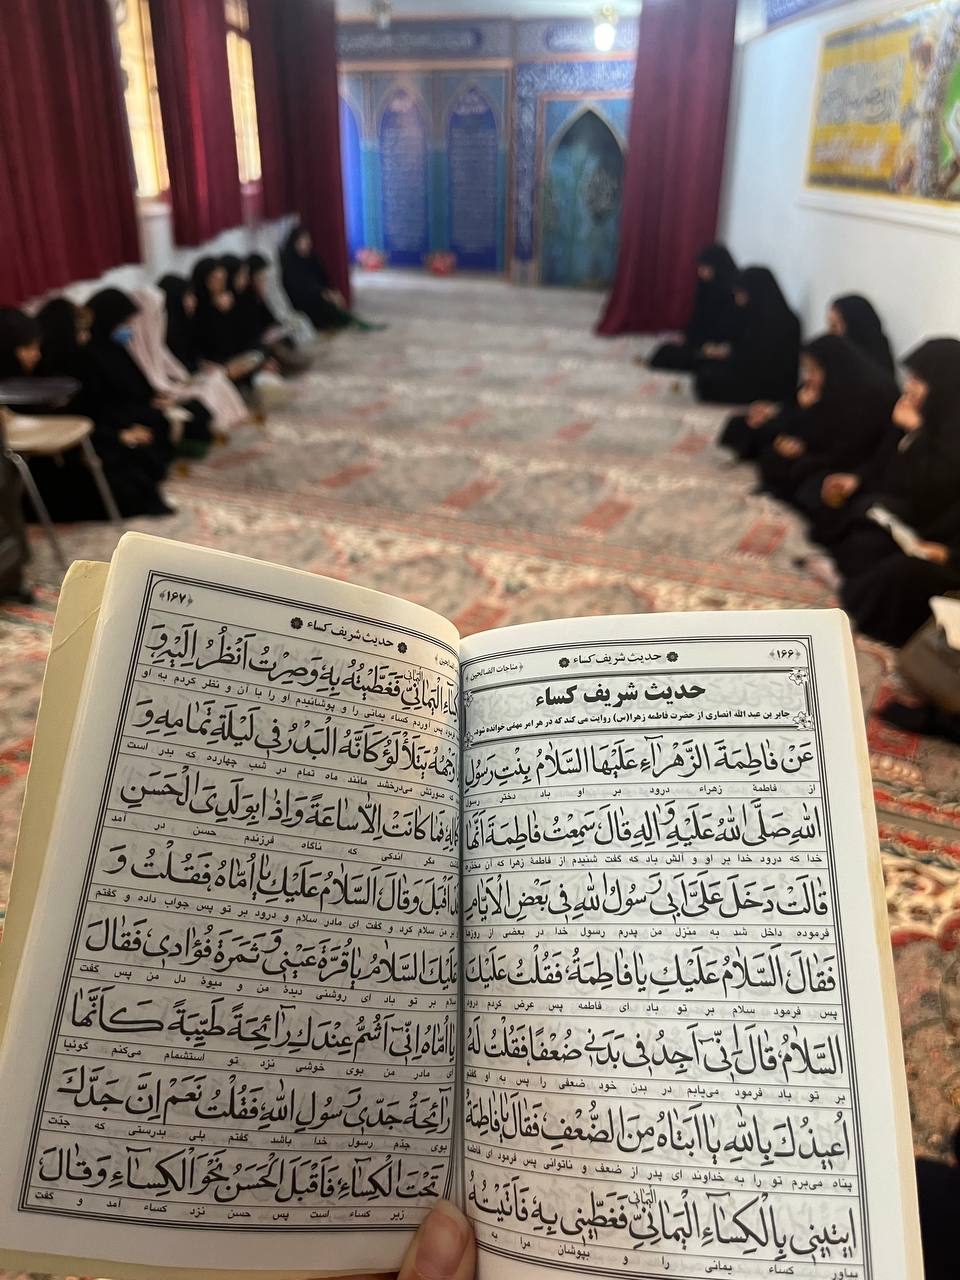 ﴿۱۶۶﴾
حدیث شریف کساء
﴿مناجات الصالحین
حدیث شریف کساء
جابر بن عبد الله انصاری از حضرت فاطمه زهرا(س) روایت می کند که در هر امر مهمی خوانده شود.
عَنْ فاطِمَةَ الزَّهْرآءِ عَلَيْهَا السَّلامُ بِنْتِ رَسُولِ
از فاطمهٔ زهراء درود بر او باد دختر رسول
اللهِ صَلَّی اللهُ عَلَيْهِ وَالِهِ قالَ سَمِعْتُ فاطِمَةَ اَنَّها
خدا که درود خدا بر او و آلش باد که گفت شنیدم از فاطمهٔ زهرا که آن مخدره
قالَتْ دَخَلَ عَلَیَّ اَبی رَسُولُ اللهِ فی بَعْضِ الْاَیّامِ
فرموده داخل شد به منزل من پدرم رسول خدا در بعضی از روزها
فَقالَ اَلسَّلامُ عَلَيْكِ یا فاطِمَةُ، فَقُلْتُ عَلَيْكَ
پس فرمود سلام بر تو باد ای فاطمه پس عرض کردم درود
السَّلامُ، قالَ اِنّی اَجِدُ فی بَدَنی ضُعْفًا فَقُلْتُ لَهُ
بر تو باد فرمود می‌یابم در بدن خود ضعفی را پس به او گفتم
اُعیذُكَ بِاللهِ یا اَبَتاهُ مِنَ الضُّعْفِ فَقالَ یا فاطِمَةُ
پناه می‌برم تو را به خداوند ای پدر از ضعف و ناتوانی پس فرمود ای فاطمه
ایتینی بِالْكِسآءِ الْیَمانِیّ فَغَطّینی بِهِ فَاَتَيْتُهُ
بیاور کساء یمانی را و بپوشان مرا به
﴿۱۶۷﴾
حدیث شریف کساء
الْیَمانِیّ فَغَطَّيْتُهُ بِهِ وَصِرْتُ اَنْظُرُ اِلَيْهِ وَ
پس آوردم کساء یمانی را و پوشانیدم او را با آن و نظر کردم به او
یَتَلَأْلَؤُ كَاَنَّهُ الْبَدْرُ فی لَيْلَةِ تَمامِهِ وَ
که صورتش می‌درخشد مانند ماه تمام در شب چهارده که بدر است
فَما كانَتْ اِلّا ساعَةً وَاِذا بِوَلَدِیَ الْحَسَنِ
مگر اندکی که ناگاه فرزندم حسن در آمد
اَقْبَلَ وَقالَ اَلسَّلامُ عَلَيْكِ یا اُمّاهُ فَقُلْتُ وَ
بر من سلام کرد و گفت ای مادر سلام و درود بر تو پس جواب داده و گفتم
عَلَيْكَ السَّلامُ یا قُرَّةَ عَيْنی وَ ثَمَرَةَ فُؤادی، فَقالَ
سلام بر تو باد ای روشنی دیدهٔ من و میوهٔ دل من پس گفت
یا اُمّاهُ اِنّی اَشَمُّ عِنْدَكِ رآئِحَةً طَیِّبَةً كَاَنَّها
ای مادر من بوی خوشی نزد تو استشمام می‌کنم گوئیا
رآئِحَةُ جَدّی رَسُولِ اللهِ، فَقُلْتُ نَعَمْ اِنَّ جَدَّكَ
بوی جدّم رسول خدا باشد گفتم بلی بدرستی که جدّت
تَحْتَ الْكِسآءِ فَاَقْبَلَ الْحَسَنُ نَحْوَ الْكِسآءِ وَ قالَ
زیر کساء است پس حسن نزد کساء آمد و گفت